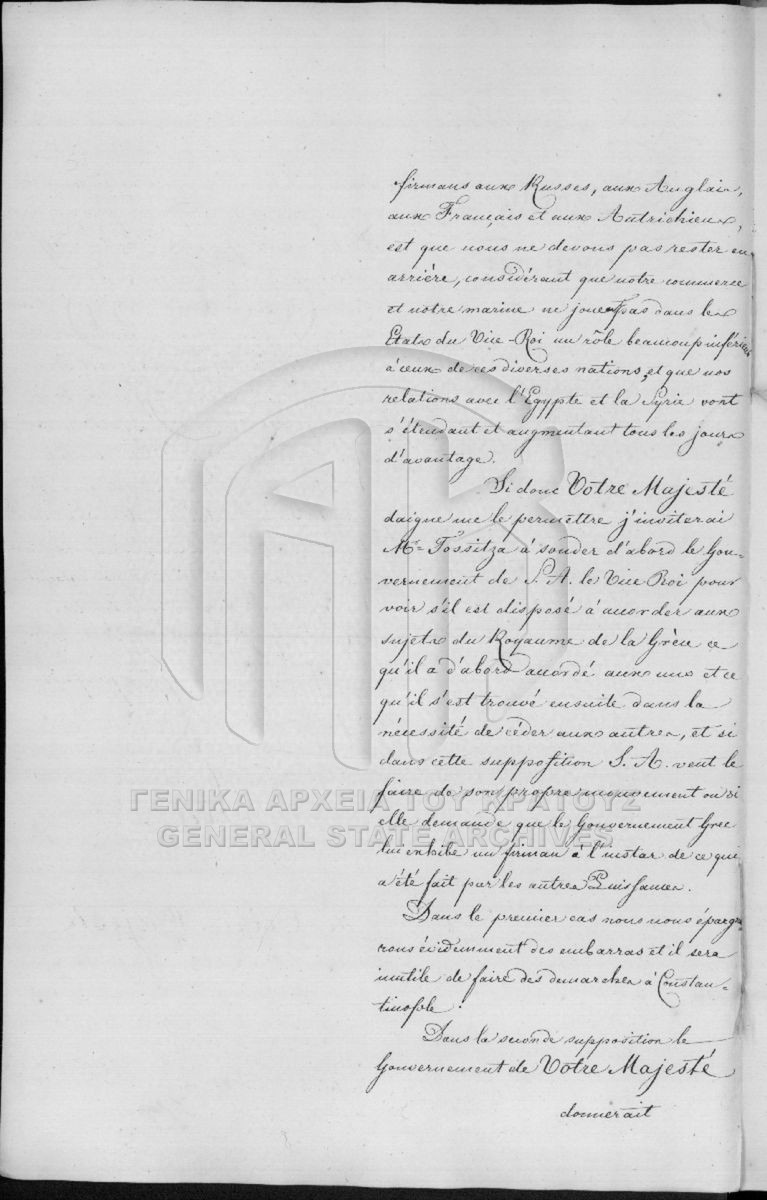 firmans aux Russes, aux Anglais,
aux Français et aux Autrichiens,
est que nous ne devons pas rester en
arrière, considérant que notre commerce
et notre marine ne jouent pas dans les
Etats du Vice-Roi un rôle beaucoup inférieur
à ceux de ces diverses nations, et que nos
relations avec l'Egypte et la Syrie vont
s'étendant et augmentant tous les jours
d'avantage.
Si donc Votre Majesté
daigne me le permettre j'inviterai
Mr Tossitza à sonder d'abord le Gou-
vernement de S. A. le Vice Roi pour
voir s'il est disposé à accorder aux
sujets du Royaume de la Grèce ce
qu'il a d'abord accordé aux uns et ce
qu'il s'est trouvé ensuite dans la
nécessité de céder aux autres, et si
dans cette supposition S. A. veut le
faire de son propre mouvement ou si
elle demande que le Gouvernement Grec
lui exhibe un firman à l'instar de ce qui
a été fait par les autres Puissances.
ΓΕΝΙΚΑ ΑΡΧΕΙΑ ΤΟΥ ΚΡΑΤΟΥΣ
GENERAL STATE ARCHIVES
Dans le premier cas nous nous épargne
rons évidemment des embarras et il sera
inutile de faire des demarches à Constan-
tinople.
Dans la seconde supposition le
Gouvernement de Votre Majesté
donnerait